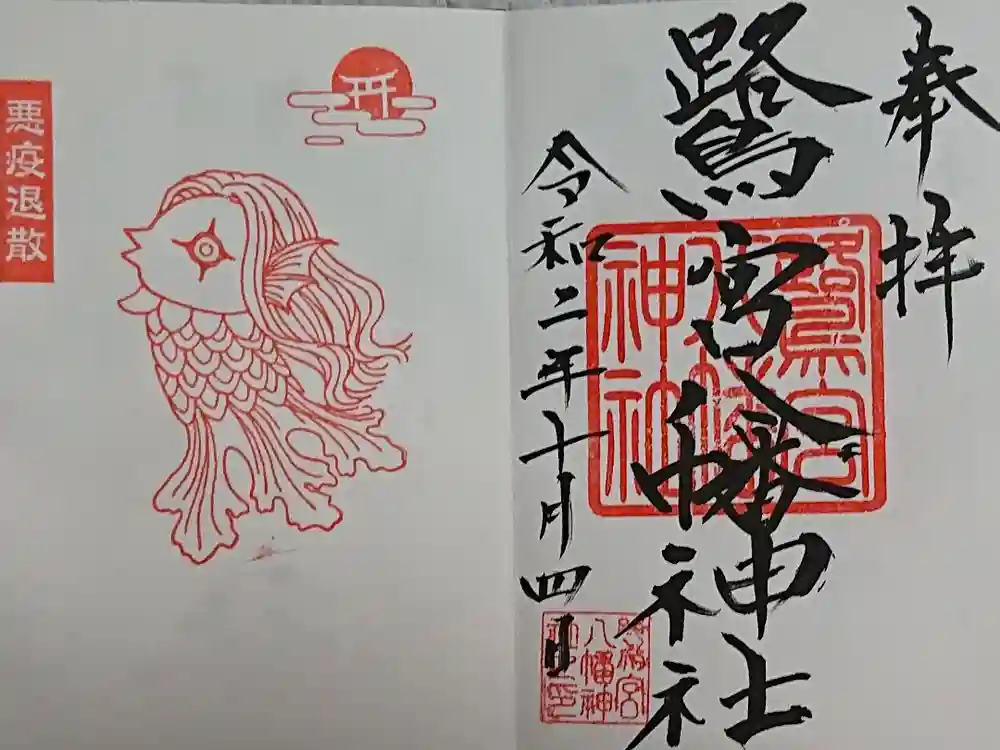 奉拝
鷺宮八幡神社
鷺宮八幡神社
令和二年十月四日
八幡神
悪疫退散